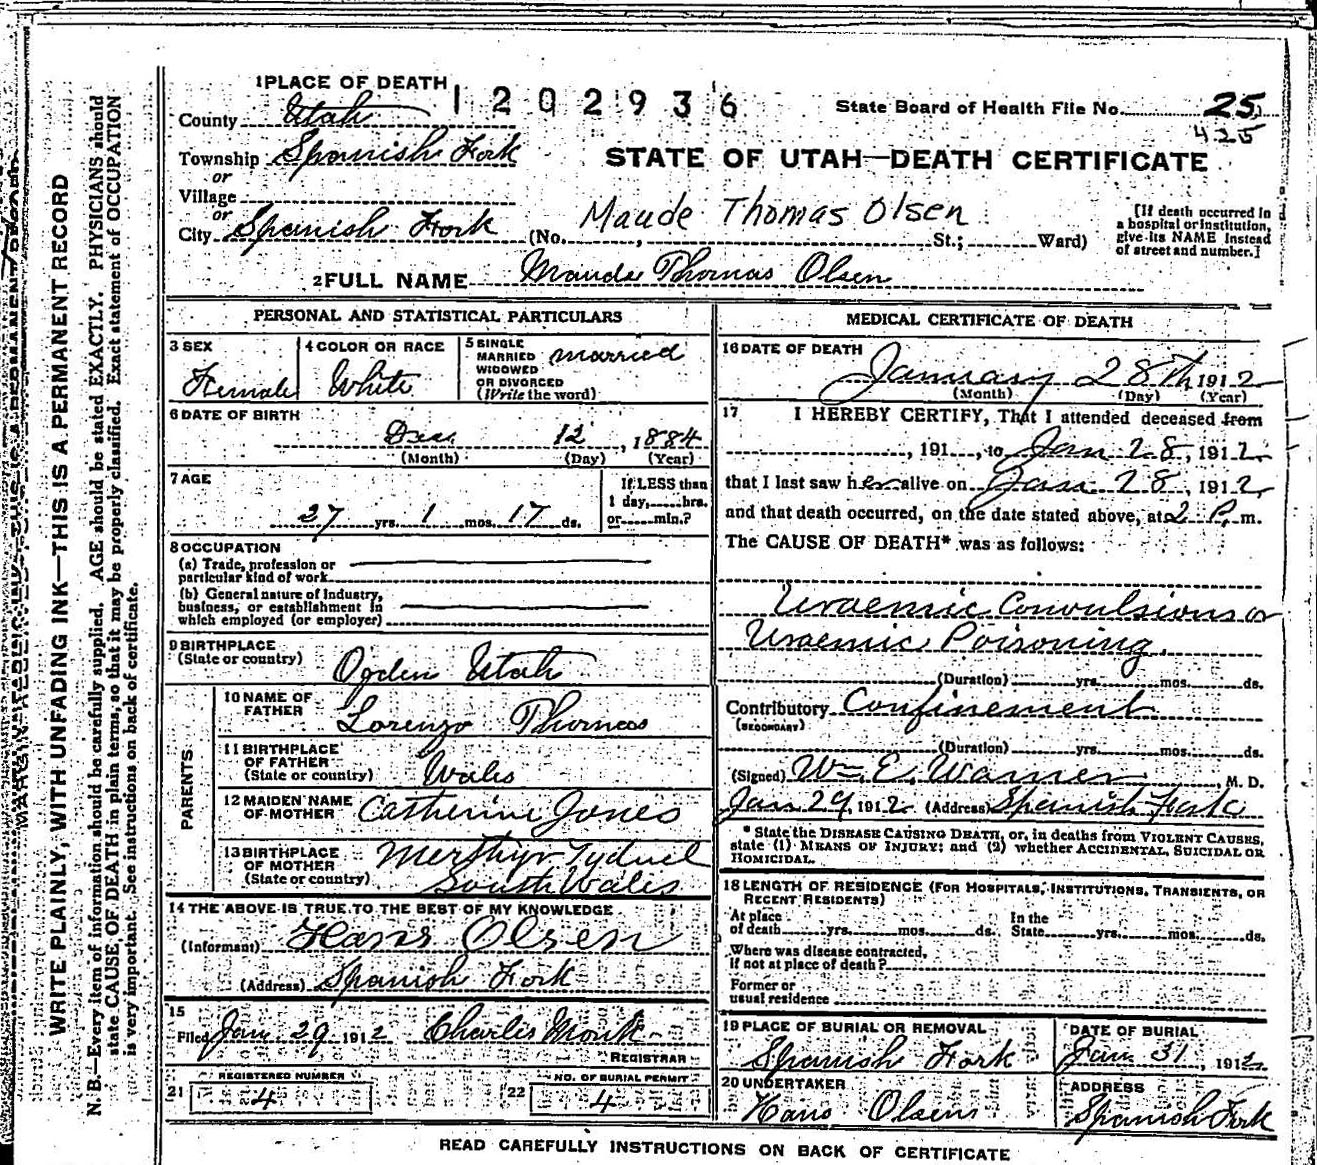 1 PLACE OF DEATH
1202936
State Board of Health File No. 25
425
County Utah
Township Spanish Fork
or
Village
or
City Spanish Fork
STATE OF UTAH—DEATH CERTIFICATE
Maude Thomas Olsen
(No. , St.; Ward)
[If death occurred in
a hospital or institution,
give its NAME instead
of street and number.]
2 FULL NAME Maude Thomas Olsen
PERSONAL AND STATISTICAL PARTICULARS
3 SEX
Female
4 COLOR OR RACE
White
5 SINGLE
MARRIED
WIDOWED
OR DIVORCED
(Write the word)
married
6 DATE OF BIRTH
Dec 12, 1884
(Month) (Day) (Year)
7 AGE
27 yrs. 1 mos. 17 ds.
If LESS than
1 day, hrs.
or min.?
8 OCCUPATION
(a) Trade, profession or
particular kind of work
(b) General nature of industry,
business, or establishment in
which employed (or employer)
9 BIRTHPLACE
(State or country)
Ogden Utah
PARENTS
10 NAME OF
FATHER
Lorenzo Thomas
11 BIRTHPLACE
OF FATHER
(State or country)
Wales
12 MAIDEN NAME
OF MOTHER
Catherine Jones
13 BIRTHPLACE
OF MOTHER
(State or country)
Merthyr Tydvel
South Wales
14 THE ABOVE IS TRUE TO THE BEST OF MY KNOWLEDGE
(Informant) Hans Olsen
(Address) Spanish Fork
15
Filed Jan 29 1912 Charles Monk
REGISTRAR
21 REGISTERED NUMBER
4
22 NO. OF BURIAL PERMIT
4
MEDICAL CERTIFICATE OF DEATH
16 DATE OF DEATH
January 28th 1912
(Month) (Day) (Year)
17 I HEREBY CERTIFY, That I attended deceased from
, 191 , to Jan 28, 1912
that I last saw her alive on Jan 28, 1912,
and that death occurred, on the date stated above, at 2 P. m.
The CAUSE OF DEATH* was as follows:
Uraemic Convulsions or
Uraemic Poisoning.
(Duration) yrs. mos. ds.
Contributory Confinement
(SECONDARY)
(Duration) yrs. mos. ds.
(Signed) Wm. E. Warner, M. D.
Jan 29, 1912 (Address) Spanish Fork
* State the DISEASE CAUSING DEATH, or, in deaths from VIOLENT CAUSES,
state (1) MEANS OF INJURY; and (2) whether ACCIDENTAL, SUICIDAL OR
HOMICIDAL.
18 LENGTH OF RESIDENCE (FOR HOSPITALS, INSTITUTIONS, TRANSIENTS, OR
RECENT RESIDENTS)
At place
of death yrs. mos. ds.
In the
State yrs. mos. ds.
Where was disease contracted,
if not at place of death?
Former or
usual residence
19 PLACE OF BURIAL OR REMOVAL
Spanish Fork
DATE OF BURIAL
Jan 31, 1912
20 UNDERTAKER
Hans Olsen
ADDRESS
Spanish Fork
READ CAREFULLY INSTRUCTIONS ON BACK OF CERTIFICATE
WRITE PLAINLY, WITH UNFADING INK—THIS IS A PERMANENT RECORD
N. B.—Every item of information should be carefully supplied. AGE should be stated EXACTLY. PHYSICIANS should
state CAUSE OF DEATH in plain terms, so that it may be properly classified. Exact statement of OCCUPATION
is very important. See instructions on back of certificate.